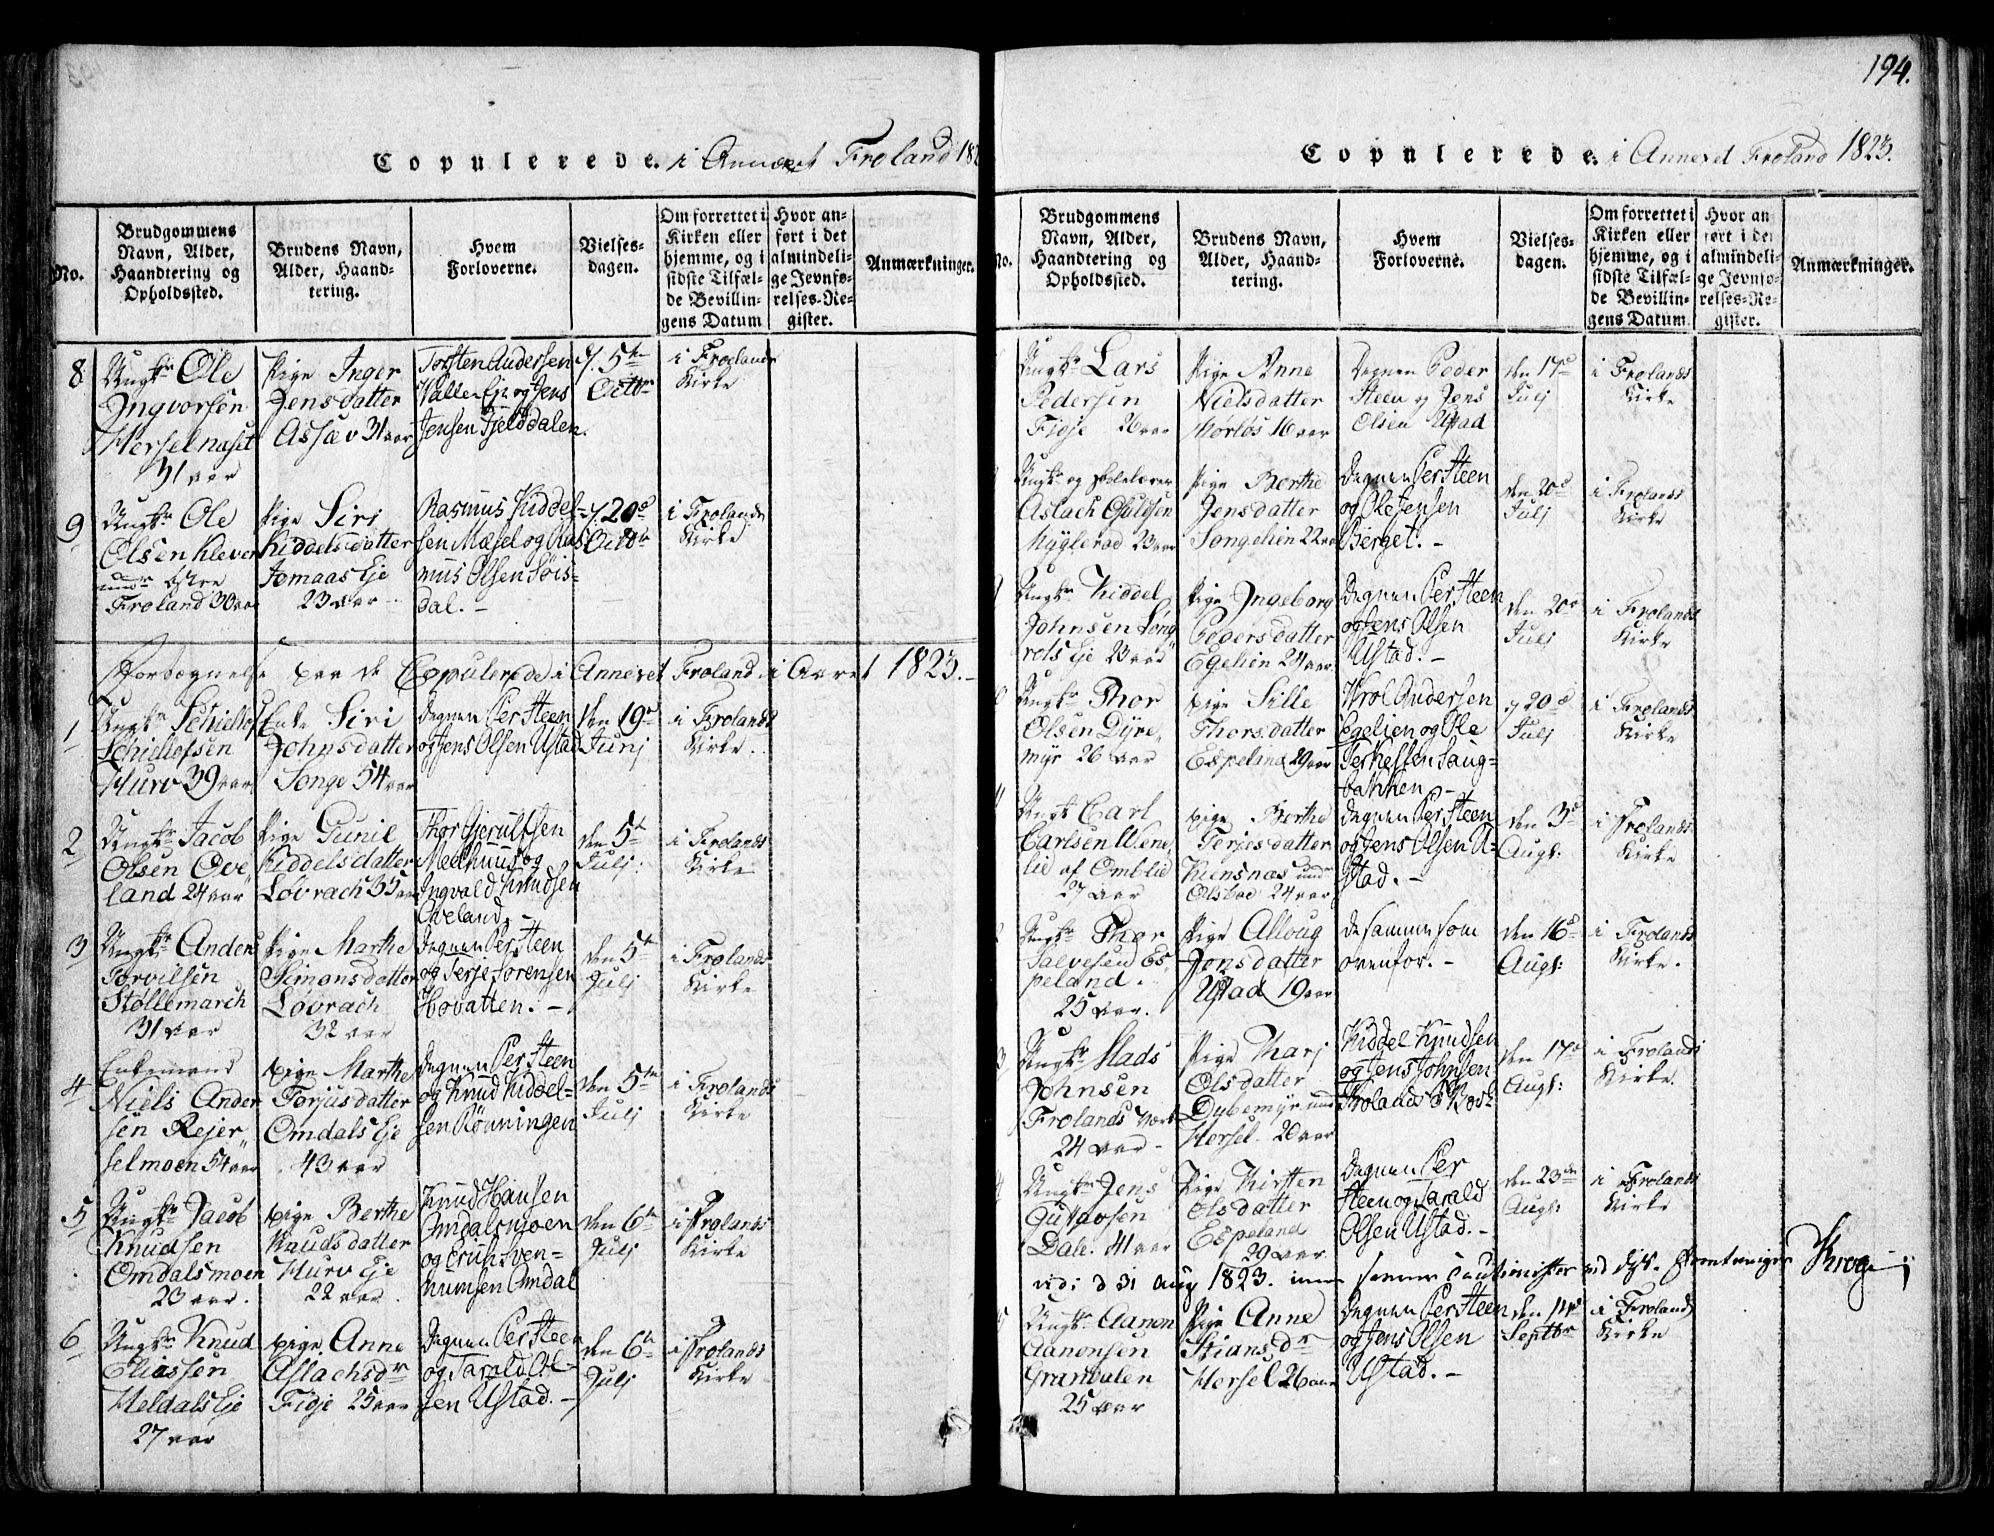 Copulerede. i Annexet Froland 182
No.
Brudgommens Navn, Alder, Haandtering og Opholdssted.
Brudens Navn, Alder, Haandtering.
Hvem Forloverne.
Vielsesdagen.
Om forrettet i Kirken eller hjemme, og i sidste Tilfælde Bevillingens Datum
Hvor anført i det almindelige Jevnførelses-Register.
Anmærkninger.
8 Ungkr Ole Ingvorsen Herselnaset 31 aar
Pige Inger Jensdatter Assæv 31 aar
Torsten Andersen Valle Eje og Jens Jensen Fjelddalen.
d. 5te Octbr
i Frolands Kirke
9 Ungkr Ole Olsen Klever undr østre Froland 30 aar
Pige Siri Kiddelsdatter Jomaas Eje 23 aar
Rasmus Kiddelsen Mæsel og Rasmus Olsen Søisdal. -
d. 20de Octbr
i Frolands Kirke
Fortegnelse paa de Copulerede i Annexet Froland i Aaret 1823. -
1 Ungkr Schiellof Schiellofsen Hurv 39 aar
Enke Siri Johnsdatter Songe 54 aar
Degnen Per Steen og Jens Olsen Ustad
den 19de Junj
i Frolands Kirke.
2 Ungkr Jacob Olsen Oveland 24 aar
Pige Gunil Kiddelsdatter Lovrach 35 aar
Thor Gjerulfsen Meelhuus og Ingvald Knudsen Oveland. -
den 5te Julj:
i Frolands Kirke
3 Ungkr Anders Torvilsen Støllemarch 31 aar
Pige Marthe Simonsdatter Lovrach 32 aar
Degnen Per Steen og Terje Sørensen Hovatten. -
den 5te Julj
i Frolands Kirke
4 Enkemand Niels Andersen Rejerselmoen 54 aar
Pige Marthe Torjusdatter Omdals Eje 43 aar
Degnen Per Steen og Knud Kiddelsen Rönningen
den 5te Julj
i Frolands Kirke
5 Ungkr Jacob Knudsen Omdalsmoen 23 aar.
Pige Berthe Knudsdatter Hurv Eje 22 aar.
Knud Hansen Omdalsmoen og Erich Svenkumsen Omdal
den 6te Julj
i Frolands Kirke
6 Ungkr Knud Eliassen Heldals Eje 27 aar
Pige Anne Aslachsdr Fidje 25 aar
Degnen Per Steen og Tarald Olsen Ustad. -
den 6te Julj
i Frolands Kirke
194.
Copulerede. i Annexet Froland 1823.
No.
Brudgommens Navn, Alder, Haandtering og Opholdssted.
Brudens Navn, Alder, Haandtering.
Hvem Forloverne.
Vielsesdagen.
Om forrettet i Kirken eller hjemme, og i sidste Tilfælde Bevillingens Datum
Hvor anført i det almindelige Jevnførelses-Register.
Anmærkninger.
Ungkr Lars Pedersen Fidje 26 aar
Pige Anne Nielsdatter Morløs 16 aar
Degnen Peder Steen og Jens Olsen Ustad
den 17de Julj
i Frolands Kirke
Ungkr og Skolelærer Aslach Gulofsen Myglerød 23 aar
Pige Berthe Jensdatter Songelien 22 aar
Degnen Per Steen og Ole Jensen Berget. -
den 20de Julj
i Frolands Kirke
Ungkr Kiddel Johnsen Songrels Eje 23 aar
Pige Ingeborg Pedersdatter Egelien 24 aar
Degnen Per Steen og Jens Olsen Ustad. -
den 20de Julj
i Frolands Kirke
Ungkr Thor Olsen Dyremyr 26 aar
Pige Sille Thorsdatter Espelina 29 aar
Wrol Andersen Egelien og Ole Terkelsen Saugbakken. -
d 20de Julj
i Frolands Kirke
Ungk Carl Carlsen Wenelid af Omblid 27 aar
Pige Berthe Terjesdatter Kiensnæs undr Olsbo 24 aar
Degnen Per Steen og Jens Olsen Ustad. -
den 3de Augs:
i Frolands Kirke
Ungkr Thor Salvesen Espeland. 25 aar.
Pige Alloug Jonsdatter Ustad 19 aar
de samme som ovenfor. -
den 16de Augs:
i Frolands Kirke.
Ungkr Mads Johnsen Frolands Værk 24 aar -
Pige Marj Olsdatter Dybemyr undr Hersel. 20 aar
Kiddel Knudsen og Jens Johnsen Frolands
den 17de Augs:
i Frolands Kirke.
Ungkr Jens Gustavsen Dale. 41 aar
Pige Kirsten Olsdatter Espeland 29 aar.
Degnen Per Steen og Tarald Olsen Ustad. -
den 23de Augs:
i Frolands Kirke
vidi d 31 aug 1823. Krog
5 Ungkr Aanon Aanonsen Grandalen 25 aar
Pige Anne Stiansdr Hersel 26 aar
Degnen Per Steen og Jens Olsen Ustad. -
den 14de Septbr
i Frolands Kirke